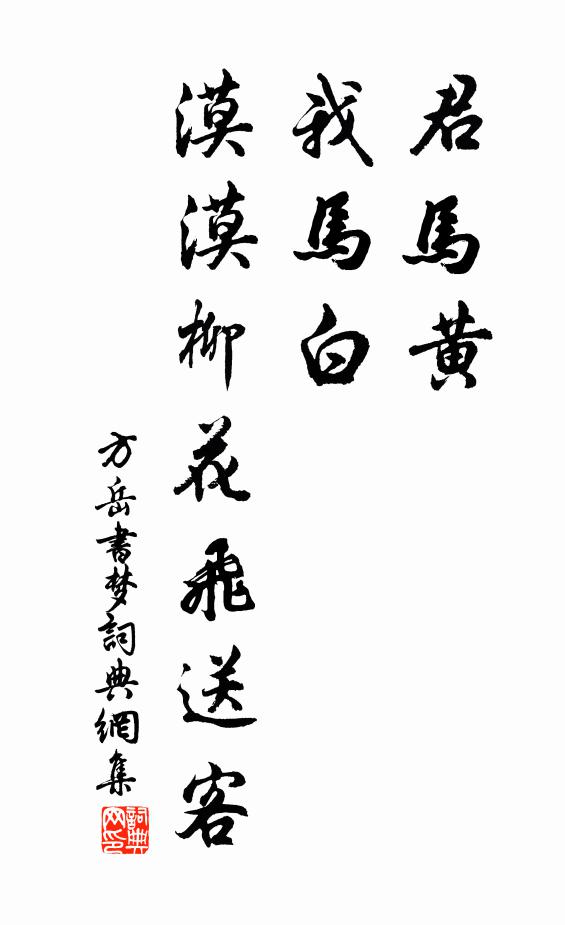 君馬黄
我馬白
漠漠柳花飛送客
方岳書梦詞典網集
詞典网印